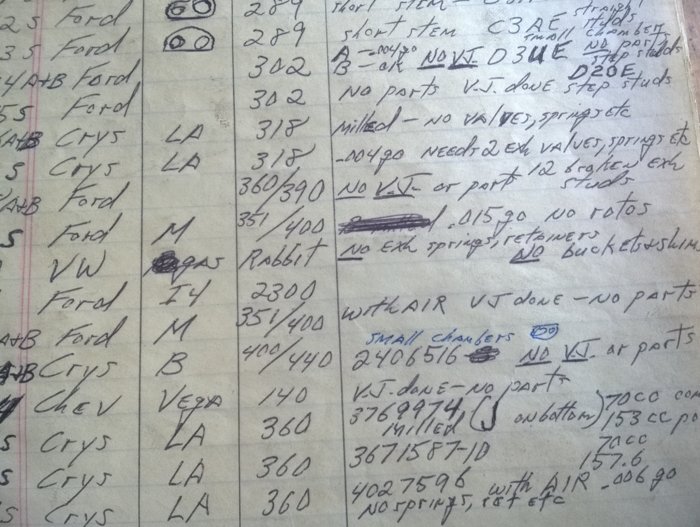 2 S Ford 289 short stem
3 S Ford 289 short stem C3AE studs
small chambers
4A+B Ford 302 A - .004 go NO VJ D3UE NO parts
B - ok step studs
5S Ford 302 No parts V.J. done step studs D20E
A+B Crys LA 318 Milled - No valves, springs etc
S Crys LA 318 .004 go needs 2 exh valves, springs etc
A+B Ford 360/390 NO V.J. or parts 12 broken exh studs
S Ford M 351/400 .015 go No rotos
VW gas Rabbit NO exh springs, retainers
NO buckets + shim
Ford I4 2300
A+B Ford M 351/400 with AIR VJ done - No parts
A+B Crys B 400/440 small chambers
2406516 NO VJ. or parts
Chev Vega 140 V.J. done - No parts
S Crys LA 360 3769974 (J on bottom) 70cc
Milled 153 cc
S Crys LA 360 3671587-1D 70cc
157.6
S Crys LA 360 4027596 with AIR .006 go
No springs, ret etc